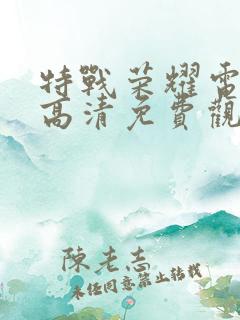 特戰荣耀電
高清免費觀
陳老志
未经同意禁止转载